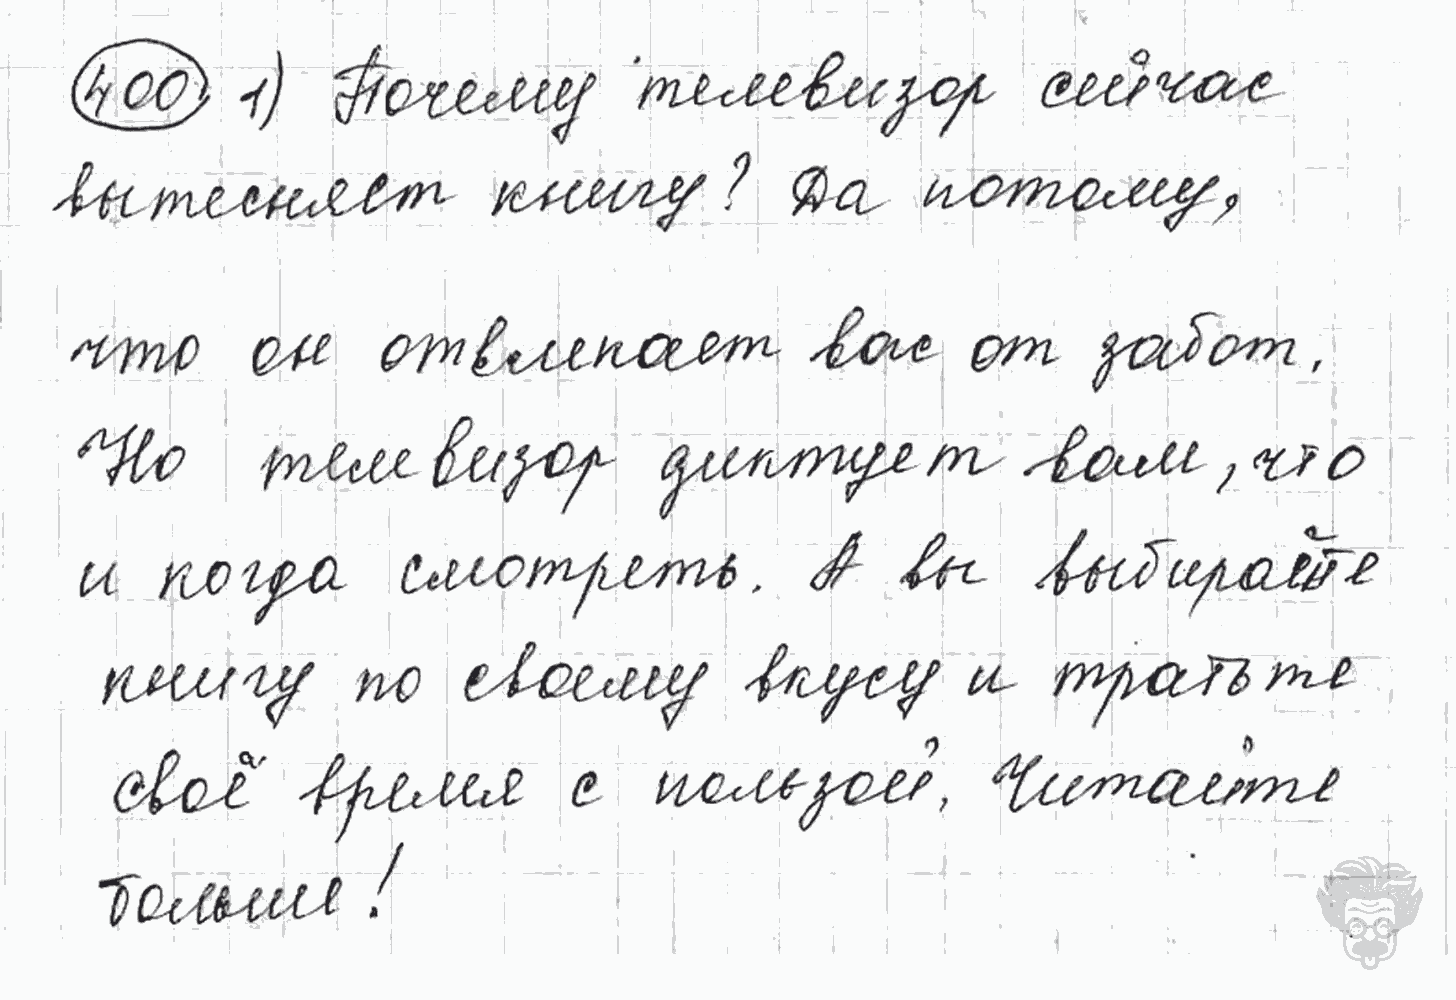 400 1) Почему телевизор сейчас
вытесняет книгу? Да потому,
что он отвлекает вас от забот.
Но телевизор диктует вам, что
и когда смотреть. А вы выбирайте
книгу по своему вкусу и тратьте
своё время с пользой. Читайте
больше!